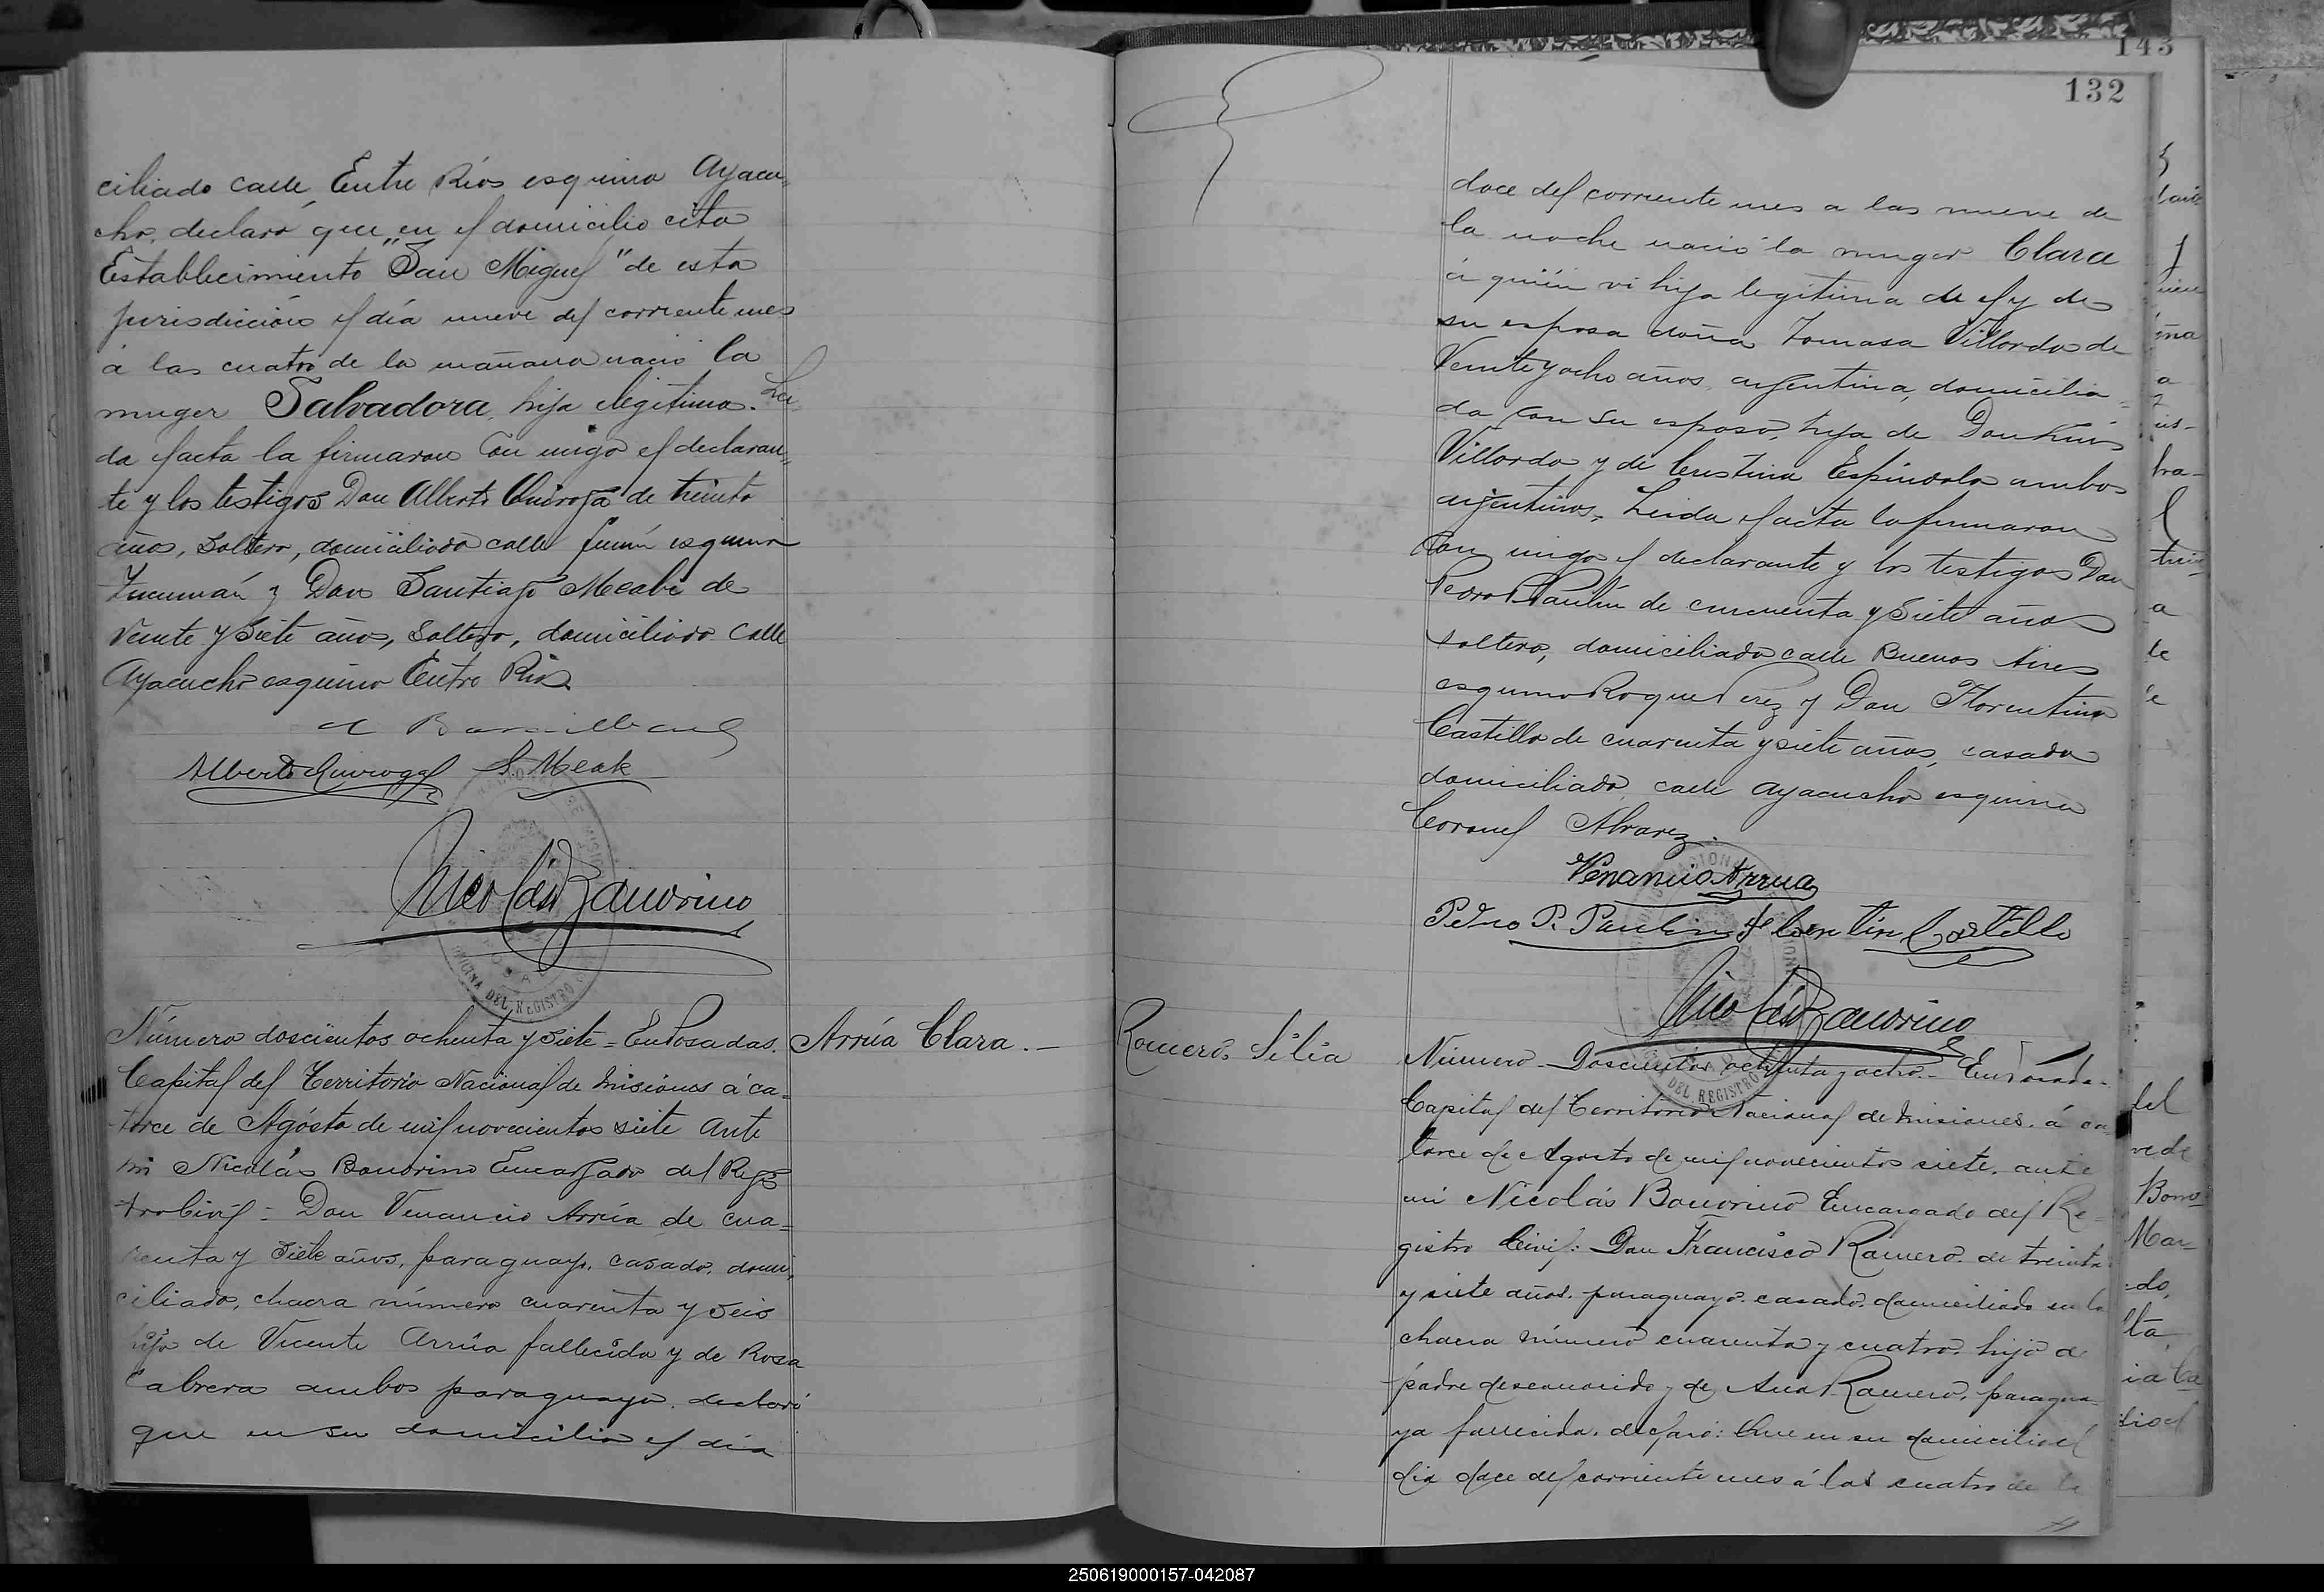 ciliado calle Entre Ríos esquina Ayacu-
cho, declaró que en el domicilio cita
Establecimiento "San Miguel" de esta
jurisdicción el día nueve del corriente mes
á las cuatro de la mañana nació la
muger Salvadora, hija ilegítima. Lei-
da el acta la firmaron con migo el declaran-
te y los testigos Don Alberto Quiroga de treinta
años, soltero, domiciliado calle Junín esquina
Tucumán y Don Santiago Meabe de
veinte y siete años, soltero, domiciliado calle
Ayacucho esquina Entre Rios.
Alberto Quiroga S. Meabe
Nicolás Bonorino
OFICINA DEL REGISTRO
Número doscientos ochenta y siete = En Posadas.
Capital del Territorio Nacional de Misiones á ca-
torce de Agosto de mil novecientos siete ante
mi Nicolás Bonorino Encargado del Regis
tro Civil = Don Venancio Arrúa de cua=
renta y siete años, paraguayo, casado, domi-
ciliado, chacra número cuarenta y seis
hijo de Vicente Arrúa fallecido y de Rosa
Cabrera ambos paraguayo, declaró
que en su domicilio el día
Arrúa Clara.-
143
132
doce del corriente mes a las nueve de
la noche nació la muger Clara
á quién vi hija legítima de el y de
su esposa doña Tomasa Villordo de
Veinte y ocho años, argentina, domicilia=
da con su esposo, hija de Don Luis
Villordo y de Cristina Espíndola ambos
argentinos. Leida el acta la firmaron
con migo el declarante y los testigos Don
Pedro P. Paulin de cincuenta y siete años
soltero, domiciliado calle Buenos Aires
esquina Roque Perez y Don Florentino
Castillo de cuarenta y siete años, casado
domiciliado calle Ayacucho esquina
Coronel Alvarez.
Venancio Arrua
Pedro P. Paulin Florentin Castillo
Nicolás Bonorino
DEL REGISTRO
Romero, Silia
Número - Doscientos ochenta y ocho.- En Posadas.
Capital del Territorio Nacional de Misiones, á ca-
torce de Agosto de mil novecientos siete, ante
mi Nicolás Bonorino Encargado del Re=
gistro Civil: Don Francisco Romero, de treinta
y siete años, paraguayo, casado, domiciliado en la
chacra número cuarenta y cuatro, hijo de
padre desconocido y de Ana Romero, paragua-
ya fallecida, declaró: Que en su domicilio el
día doce del corriente mes á las cuatro de la
250619000157-042087